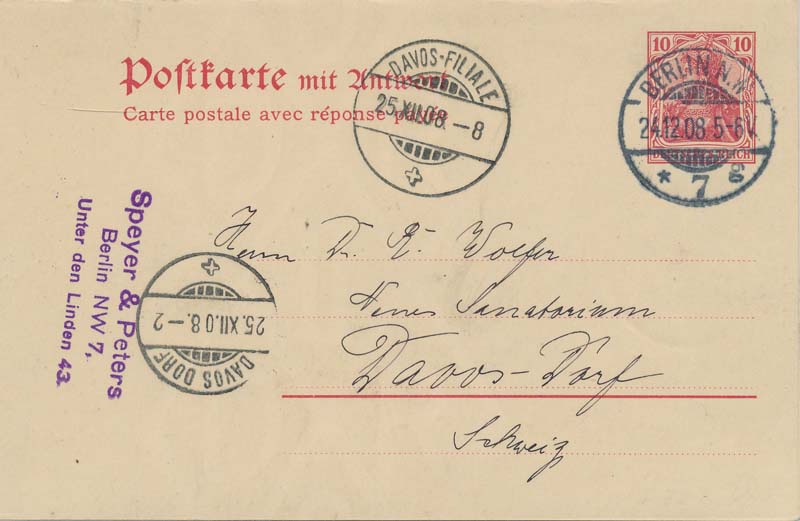 Postkarte mit Antwort
Carte postale avec réponse payée
DAVOS-FILIALE
25.XII.08.-8
10 10
DEUTSCHES REICH
BERLIN N.W.
24.12.08 5-6V.
* 7 g
Speyer & Peters
Berlin NW 7,
Unter den Linden 43.
DAVOS DORF
25.XII.08.-2
Herrn Dr. R. Wolfer
Neues Sanatorium
Davos-Dorf
Schweiz